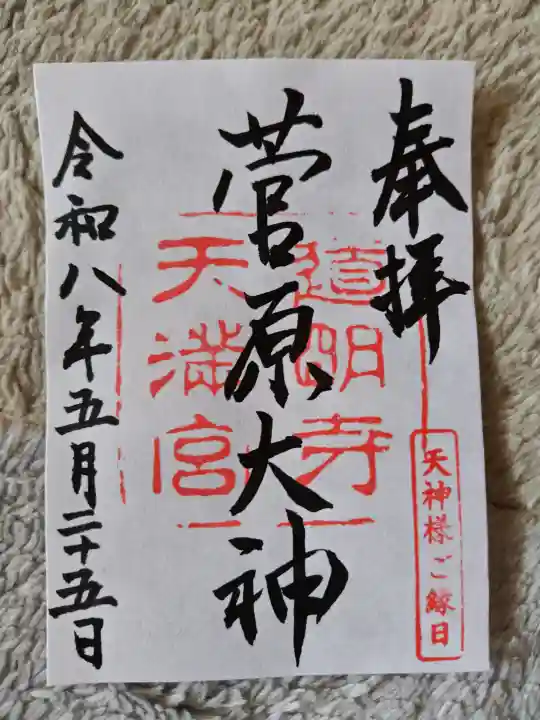 奉拝
天神様ご縁日
菅原大神
道明寺
天満宮
令和八年五月二十五日